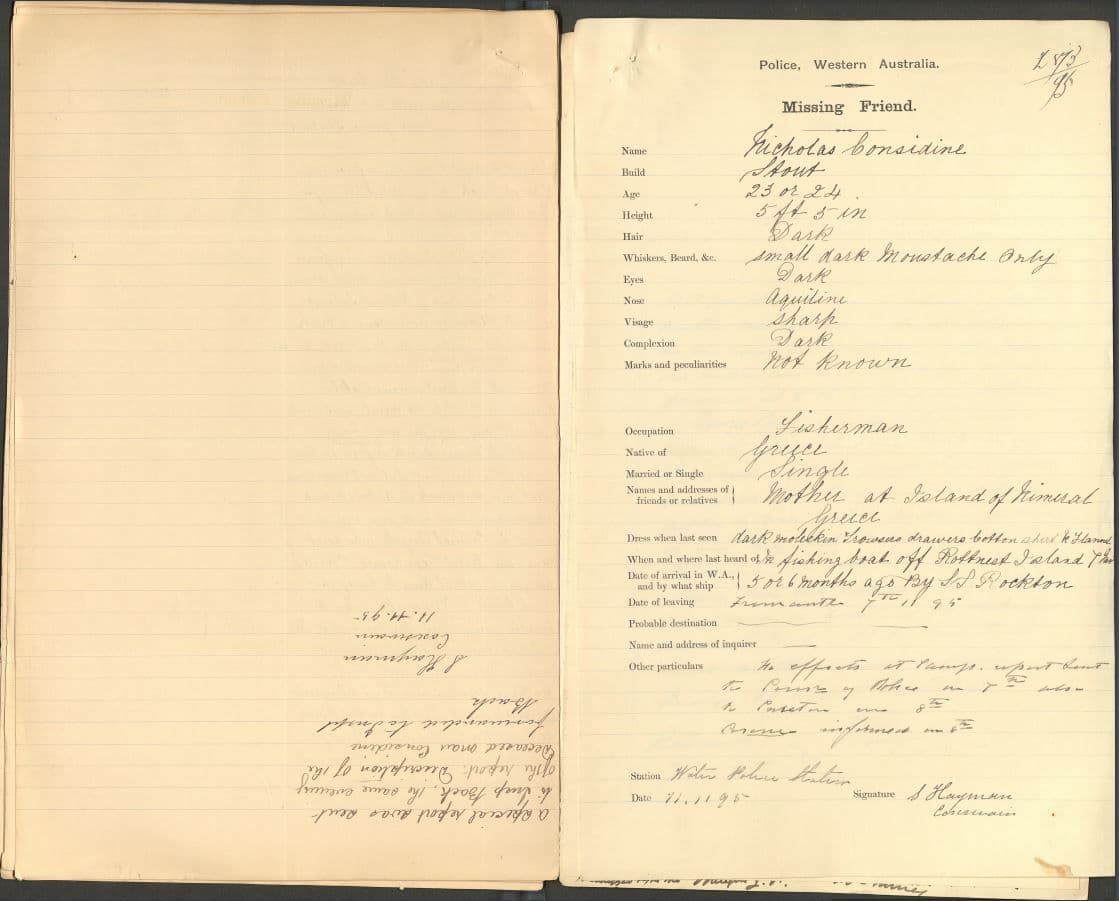 A special report was sent
to Insp Back, the same evening
of the report. Description of the
Deceased man Considine
forwarded to Inspt
Back
S Hayman
Coxswain
11.11.95
Police, Western Australia.
Missing Friend.
Name Nicholas Considine
Build Stout
Age 23 or 24
Height 5 ft 5 in
Hair Dark
Whiskers, Beard, &c. small dark Moustache Only
Eyes Dark
Nose Aquiline
Visage sharp
Complexion Dark
Marks and peculiarities Not Known
Occupation Fisherman
Native of Greece
Married or Single Single
Names and addresses of friends or relatives Mother at Island of
Greece
Dress when last seen dark moleskin Trowsers drawers Cotton shirt &
When and where last heard of fishing boat off Rottnest Island
Date of arrival in W.A., and by what ship 5 or 6 months ago By SS Rockton
Date of leaving Fremantle 7th 11 95
Probable destination
Name and address of inquirer
Other particulars No effects at Camp. report sent
to of Police on 7th also
to on 8th
informed on 8th
Station Water Police Station
Date 11.11 95 Signature S Hayman
Coxswain